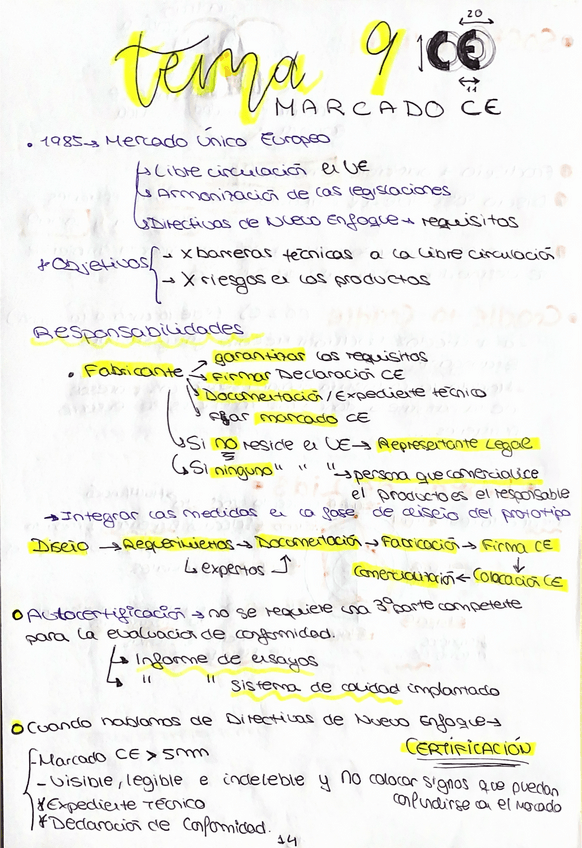 tema 9
20
CE
11
MARCADO CE
• 1985 → Mercado Único Europeo
→ Libre circulación en UE
→ Armonización de las legislaciones
→ Directivas de Nuevo Enfoque → requisitos
* Objetivos
→ X barreras técnicas a la libre circulación
→ X riesgos en los productos
Responsabilidades
• Fabricante
→ garantizar los requisitos
→ Firmar Declaración CE
→ Documentación/Expediente técnico
marcado CE
→ Si no reside en UE → Representante Legal
→ Si ninguno " " " → persona que comercialice
el producto es el responsable
→ Integrar las medidas en la fase de diseño del prototipo
Diseño → Requerimientos → Documentación → Fabricación → Firma CE
↳ expertos
Comercialización ← Colocación CE
• Autocertificación → no se requiere una 3ª parte competente
para la evaluación de conformidad.
→ Informe de ensayos
→ " " Sistema de calidad implantado
• Cuando hablamos de Directivas de Nuevo Enfoque →
CERTIFICACIÓN
- Marcado CE > 5mm
- Visible, legible e indeleble y no colocar signos que puedan
confundirse con el Marcado
* Expediente Técnico
* Declaración de Conformidad.
14